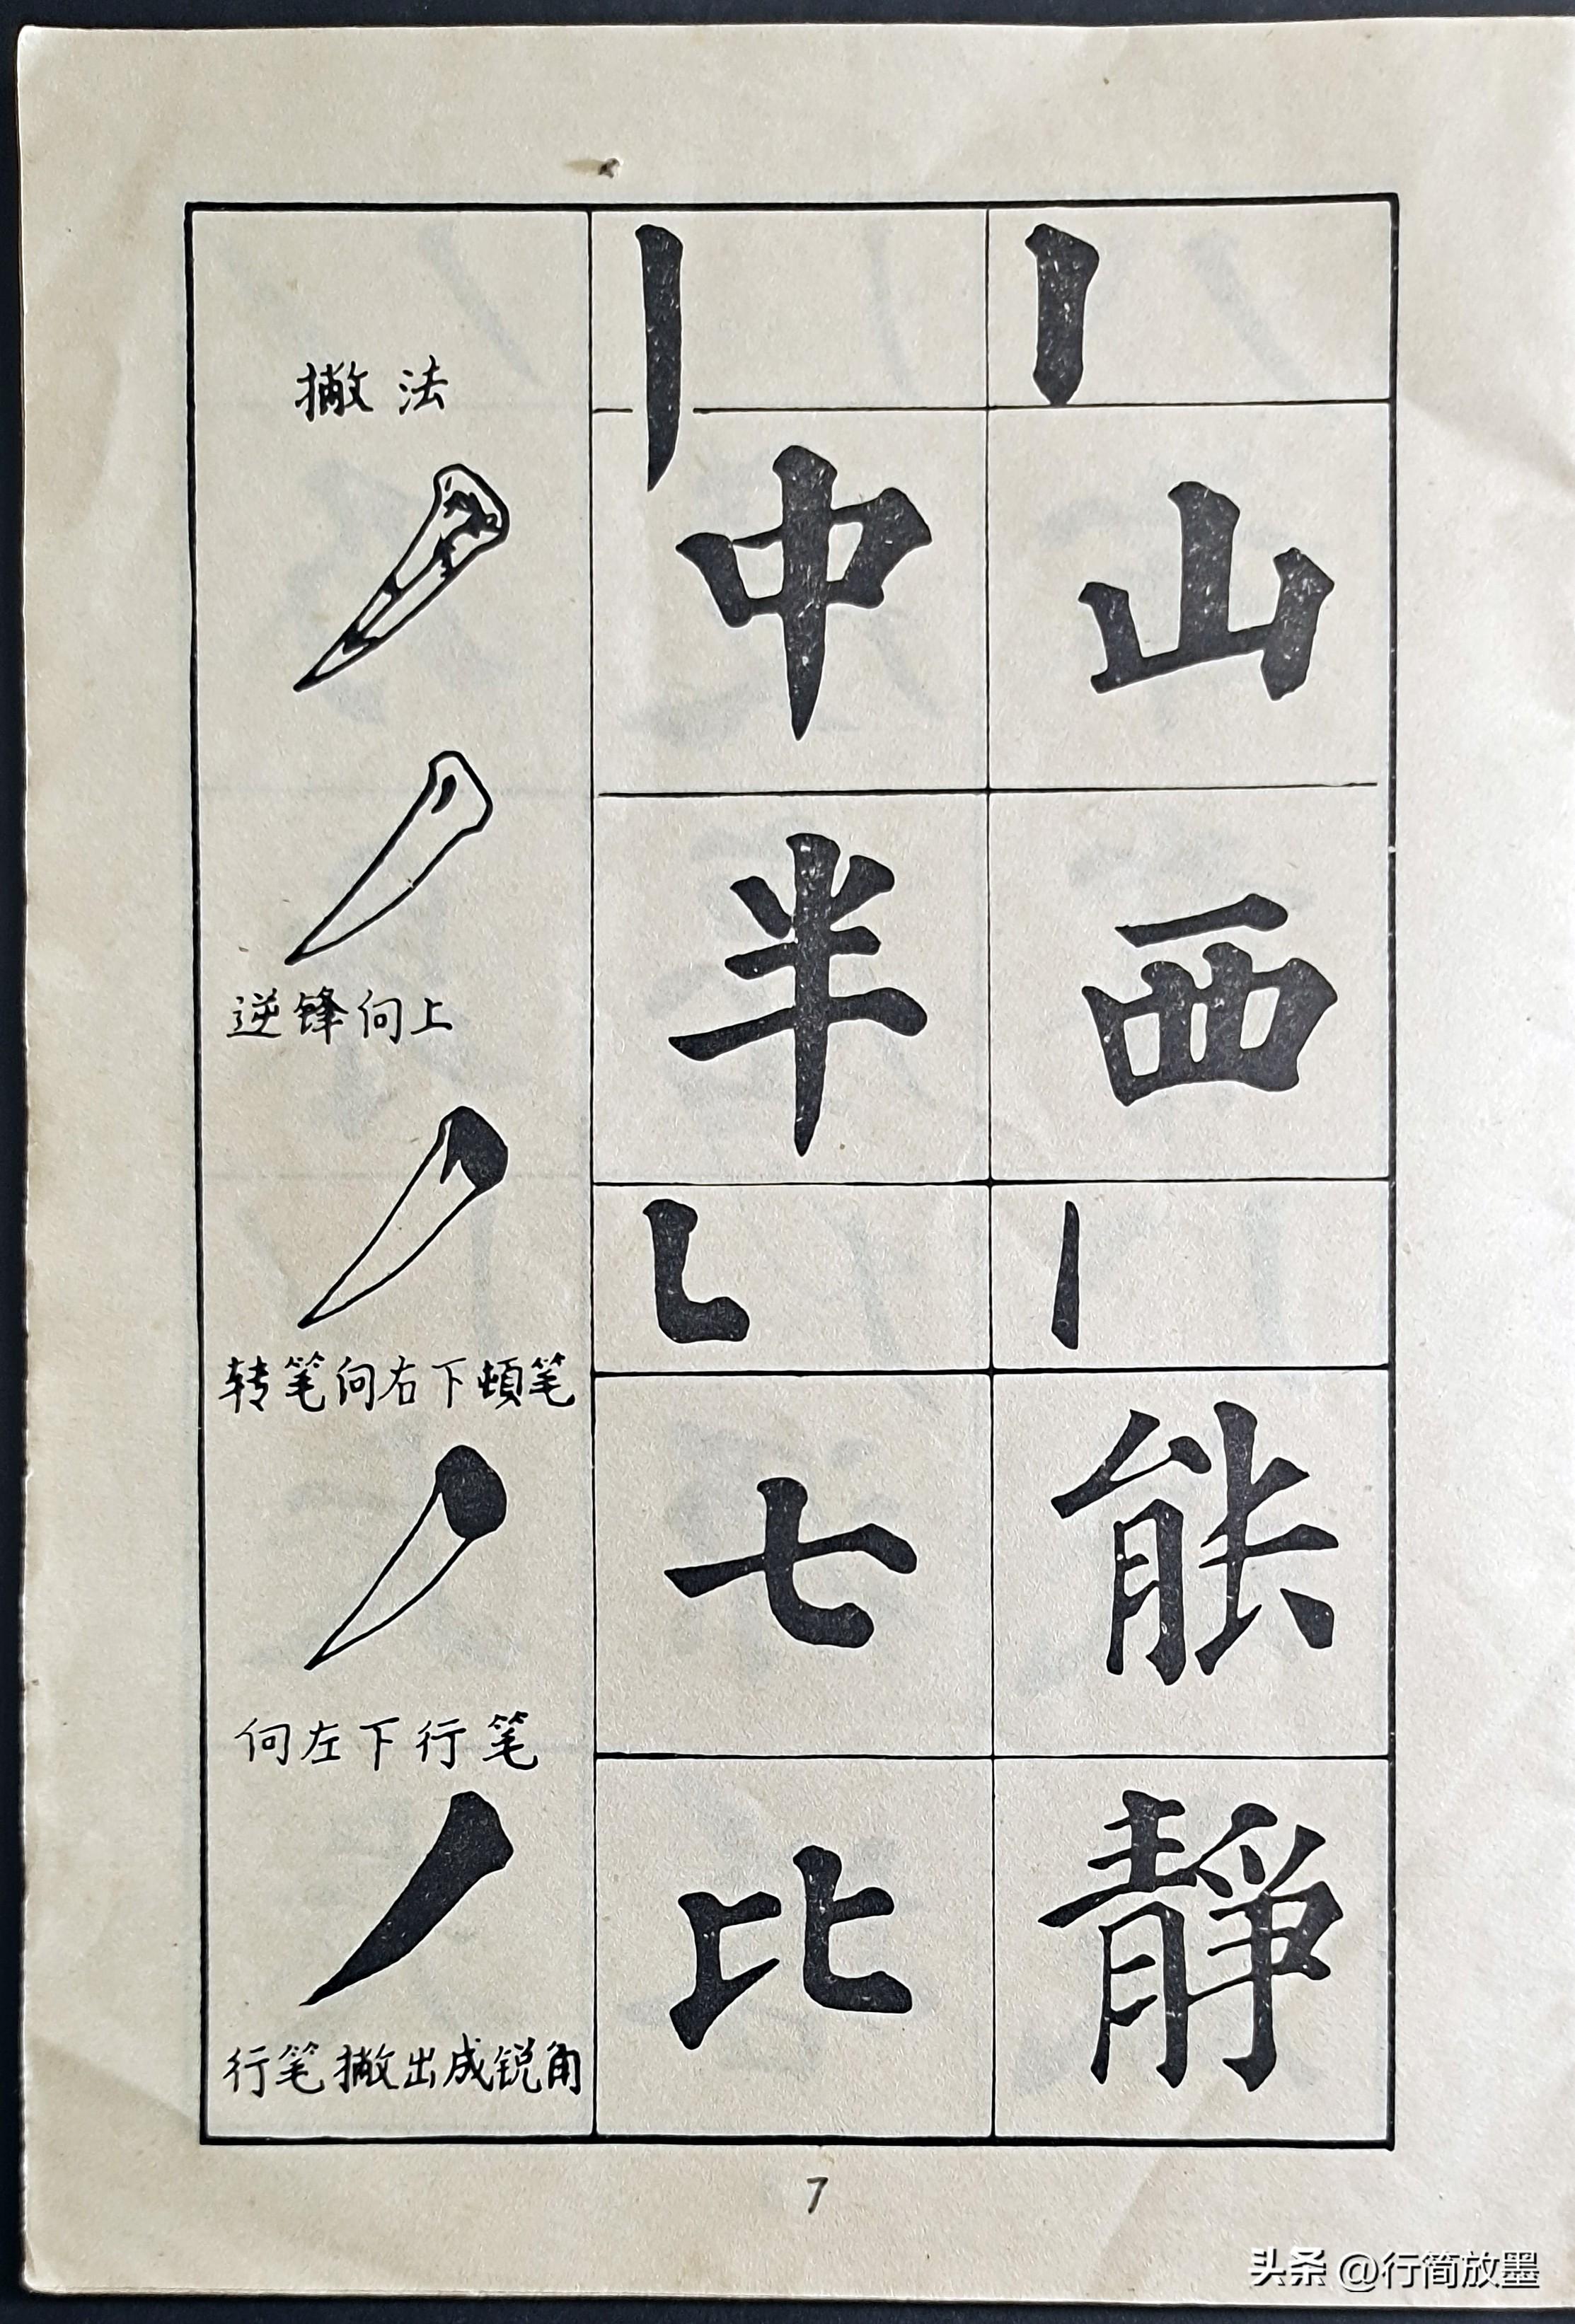 撇法
逆锋向上
转笔向右下顿笔
向左下行笔
行笔撇出成锐角
中
半
七
比
山
西
能
靜
7
头条 @行简放墨